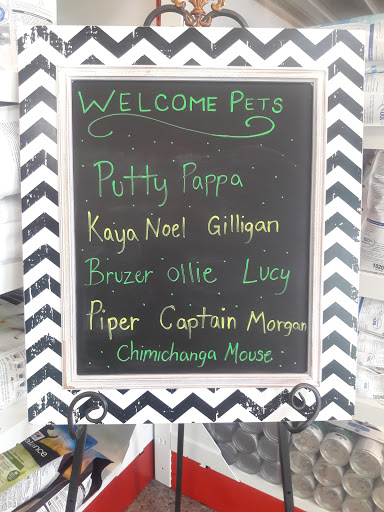 WELCOME PETS
Putty Pappa
Kaya Noel Gilligan
Bruzer ollie Lucy
Piper Captain Morgan
Chimichanga Mouse